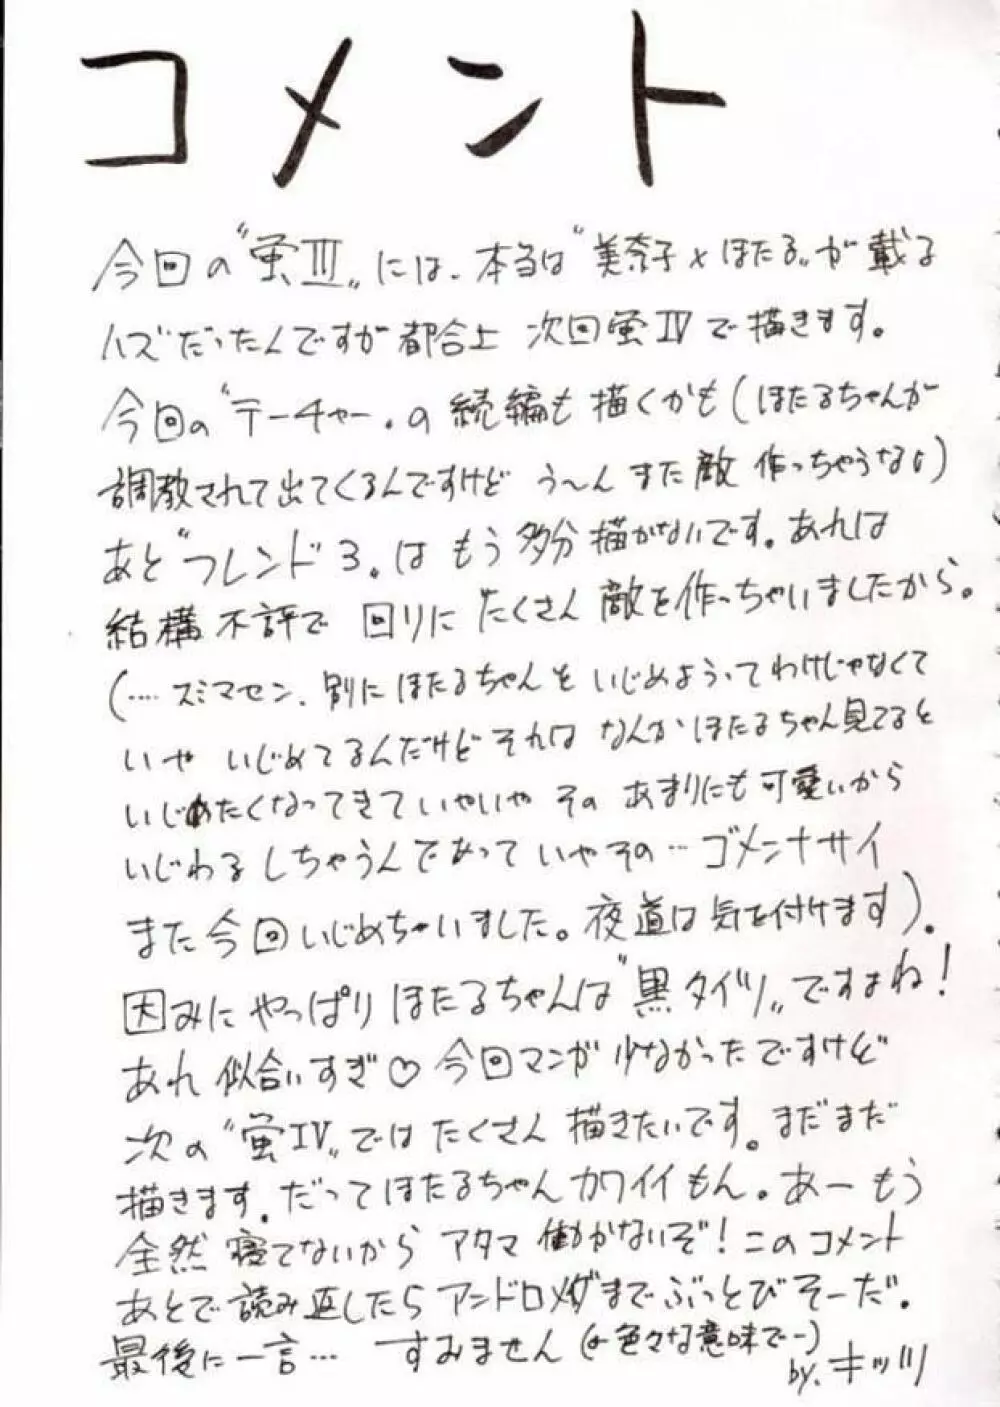 コメント
今回の〝蛍III〟には、本当は〝美奈子×ほたる〟が載る
ハズだったんですが都合上 次回蛍IVで描きます。
今回の〝テーチャー〟の続編も描くかも(ほたるちゃんが
調教されて出てくるんですけど う〜んまた敵作っちゃうなぁ)
あと〝フレンド3〟はもう多分描かないです。あれは
結構不評で回りにたくさん敵を作っちゃいましたから。
(‥‥スミマセン、別にほたるちゃんをいじめようってわけじゃなくて
いや いじめてるんだけどそれは なんかほたるちゃん見てると
いじめたくなってきていやいや その あまりにも可愛いから
いじわるしちゃうんであっていやその… ゴメンナサイ
また今回いじめちゃいました。夜道は気を付けます)。
因みにやっぱりほたるちゃんは〝黒タイツ〟ですよね!
あれ似合いすぎ♡今回マンガ少なかったですけど
次の〝蛍IV〟ではたくさん描きたいです。まだまだ
描きます。だってほたるちゃんカワイイもん。あーもう
全然寝てないからアタマ働かないぞ!このコメント
あとで読み返したらアンドロメダまでぶっとびそーだ。
最後に一言… すみません(←色々な意味でー)
by.キッツ